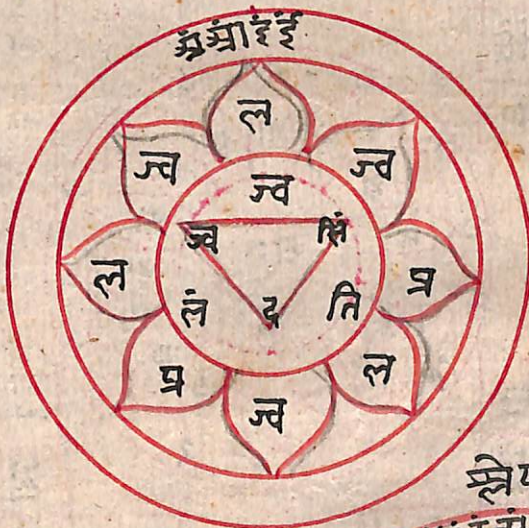 अंआंइंईं
ल
ज्व ज्व
ज्व
ज्व
ल प्र
लं द ति
प्र ल
ज्व